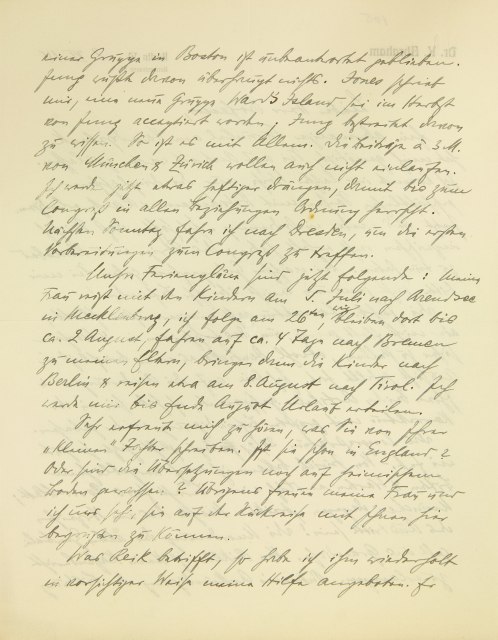 einer Gruppe in Boston ist unbeantwortet geblieben.
Jung wußte davon überhaupt nichts. Jones schrieb
mir, eine neue Gruppe Ward's Island sei im Herbst
von Jung acceptiert worden; Jung bestreitet davon
zu wissen. So ist es mit Allem. Die Beiträge à 3 M.
von München & Zürich wollen auch nicht einlaufen.
Ich werde jetzt etwas heftiger drängen, damit bis zum
Congreß in allen Beziehungen Ordnung herrscht.
Nächsten Sonntag fahre ich nach Dresden, um die ersten
Vorbereitungen zum Congreß zu treffen.
Unsre Ferienpläne sind jetzt folgende: meine
Frau reist mit den Kindern am 5. Juli nach Arendsee
in Mecklenburg, ich folge am 26ten, wir bleiben dort bis
ca. 2 August, fahren auf ca. 4 Tage nach Bremen
zu meinen Eltern, bringen dann die Kinder nach
Berlin & reisen etwa am 8. August nach Tirol. Ich
werde mir bis Ende August Urlaub erteilen.
Sehr erfreut mich zu hören, was Sie von Ihrer
„kleinen" Tochter schreiben. Ist sie schon in England?
Oder sind die Übersetzungen noch auf heimischem
Boden gewachsen? Übrigens freuen meine Frau und
ich uns sehr, sie auf der Rückreise mit Ihnen hier
begrüßen zu können.
Was Reik betrifft, so habe ich ihm wiederholt
in vorsichtiger Weise meine Hilfe angeboten. Er